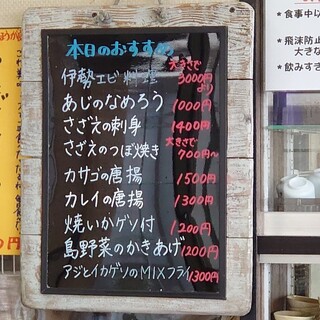 本日のおすすめ
伊勢エビ料理 大きさで 3000円より
あじのなめろう 1000円
さざえの刺身 1400円
さざえのつぼ焼き 大きさで 700円~
カサゴの唐揚 1500円
カレイの唐揚 1300円
焼いかゲソ付 1200円
島野菜のかきあげ 1200円
アジとイカゲソのMIXフライ 1300円
・食事中以
・飛沫防止
大きな
・飲みすぎ